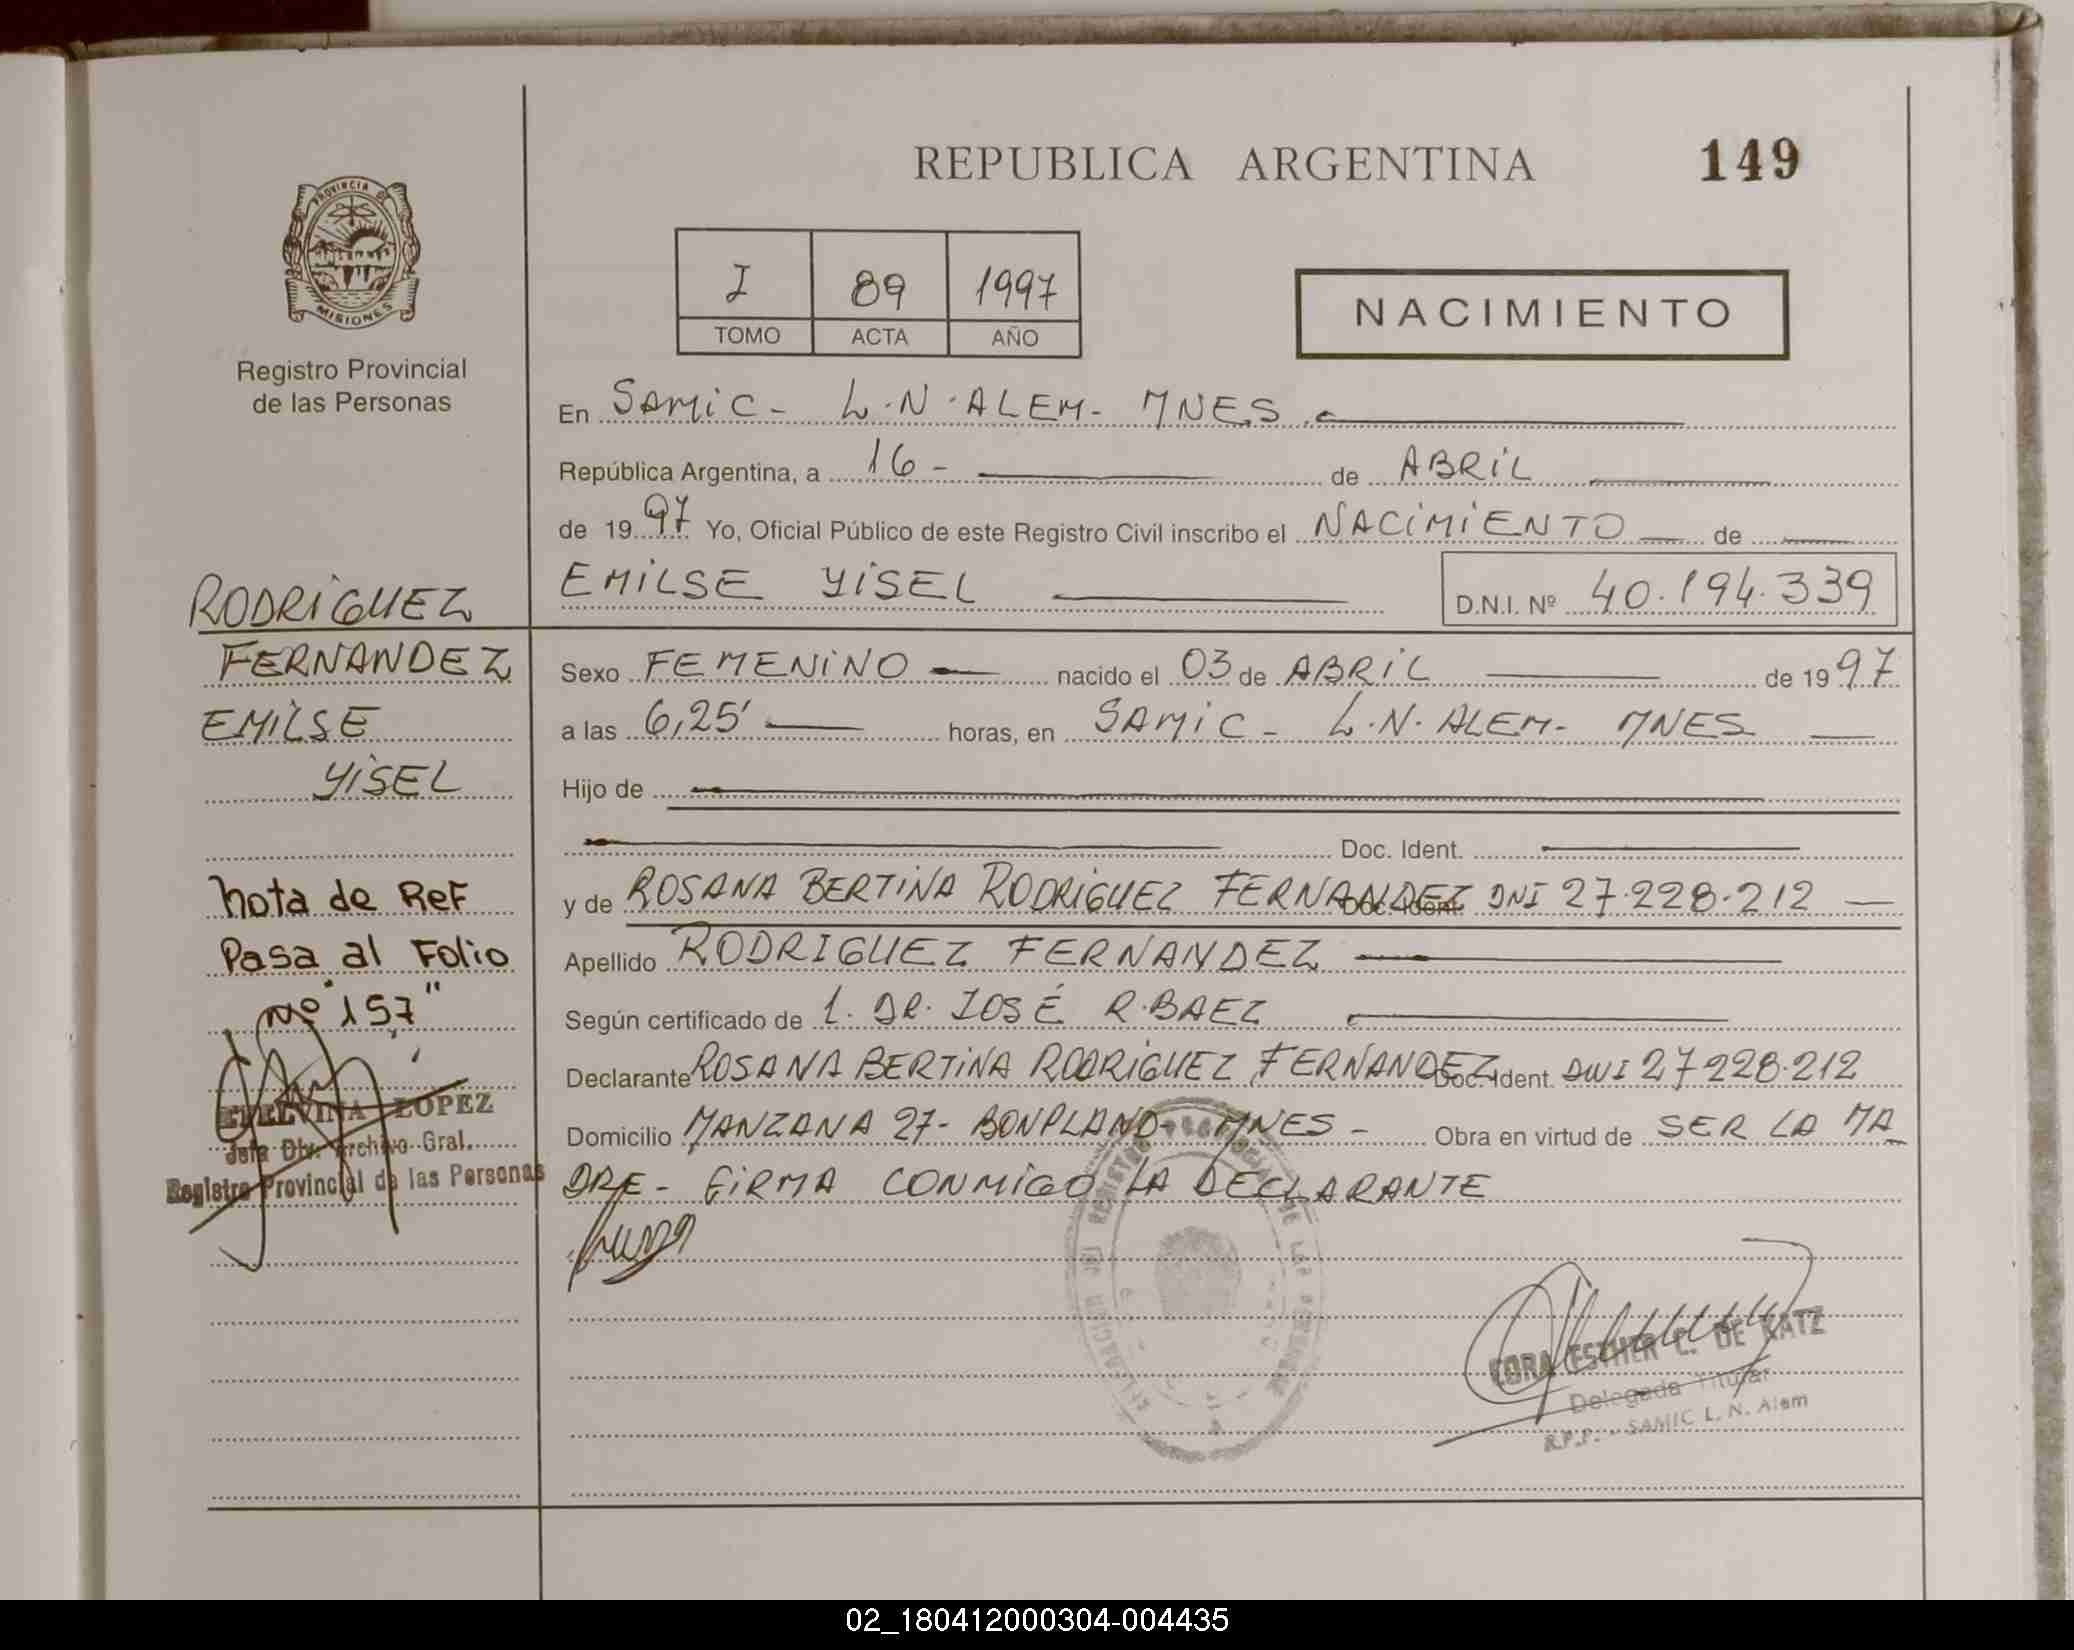 REPUBLICA ARGENTINA
149
PROVINCIA DE
MISIONES
Registro Provincial
de las Personas
I 89 1997
TOMO ACTA AÑO
NACIMIENTO
En SAMIC - L.N. ALEM - MNES.
República Argentina, a 16 - de ABRIL
de 1997 Yo, Oficial Público de este Registro Civil inscribo el NACIMIENTO de
EMILSE YISEL D.N.I. Nº 40.194.339
RODRIGUEZ
FERNANDEZ
EMILSE
YISEL
Sexo FEMENINO nacido el 03 de ABRIL de 1997
a las 6,25' horas, en SAMIC - L.N. ALEM - MNES
Hijo de
Doc. Ident.
y de ROSANA BERTINA RODRIGUEZ FERNANDEZ Doc. Ident. DNI 27.228.212
Apellido RODRIGUEZ FERNANDEZ
Según certificado de 1. DR. JOSÉ R. BAEZ
Declarante ROSANA BERTINA RODRIGUEZ FERNANDEZ Doc. Ident. DNI 27228.212
Domicilio MANZANA 27 - BONPLAND - MNES - Obra en virtud de SER LA MA
DRE - FIRMA CONMIGO LA DECLARANTE
Nota de Ref
Pasa al Folio
Nº 157"
LOPEZ
Jefa Div. Archivo Gral.
Registro Provincial de las Personas
CORA ESTHER C. DE KATZ
Delegada Titular
R.P.P. - SAMIC L. N. Alem
02_180412000304-004435